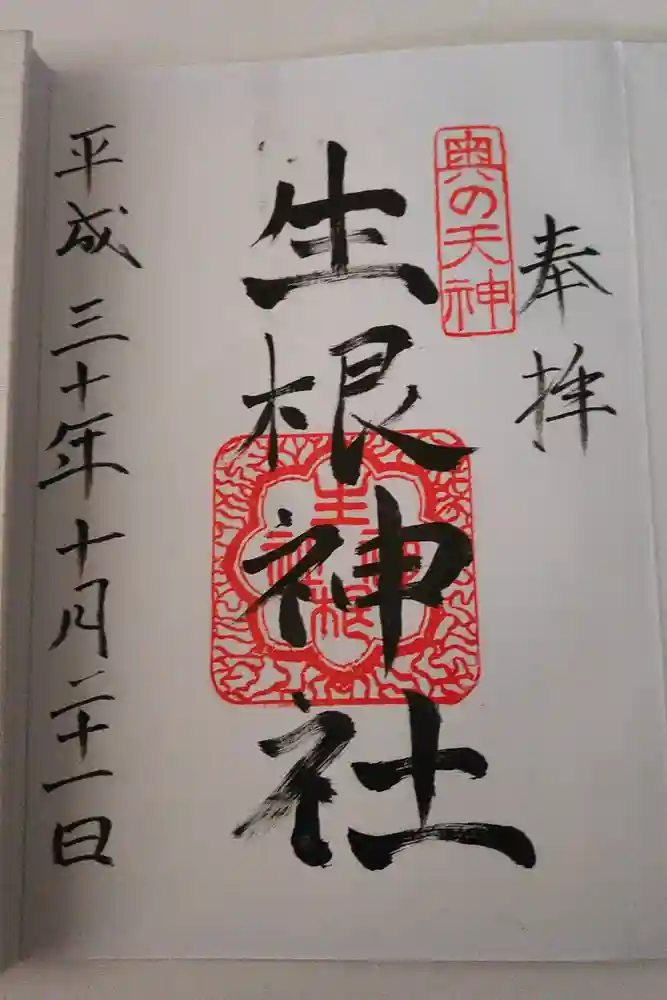 奉拝
奥の天神
生根神社
生根神社
平成三十年十月二十一日